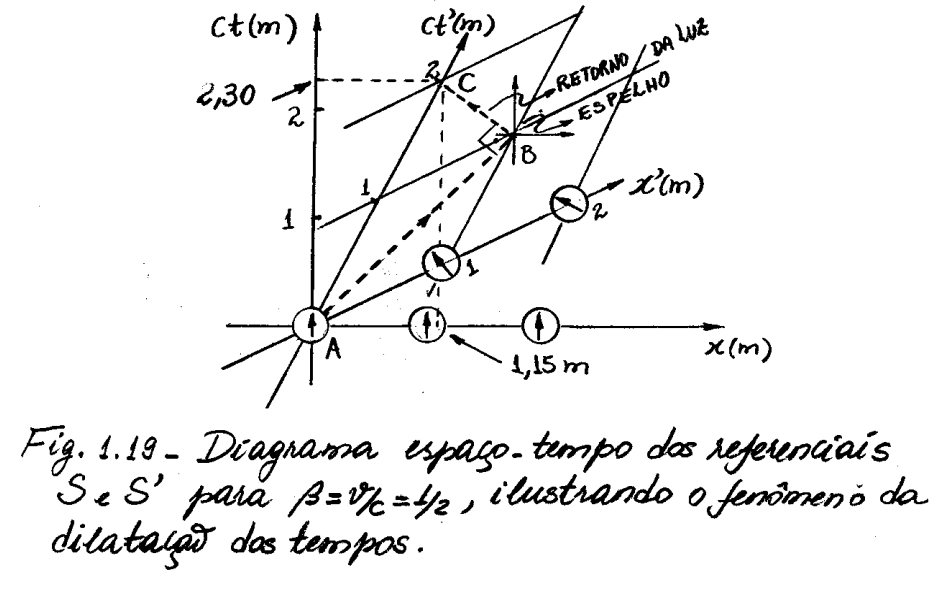 Ct(m)
Ct'(m)
2,30
2
2
C
RETORNO DA LUZ
ESPELHO
B
1
1
x'(m)
2
1
A
1,15 m
x(m)
Fig. 1.19 - Diagrama espaço-tempo dos referenciais
S e S' para β = v/c = 1/2, ilustrando o fenômeno da
dilatação dos tempos.